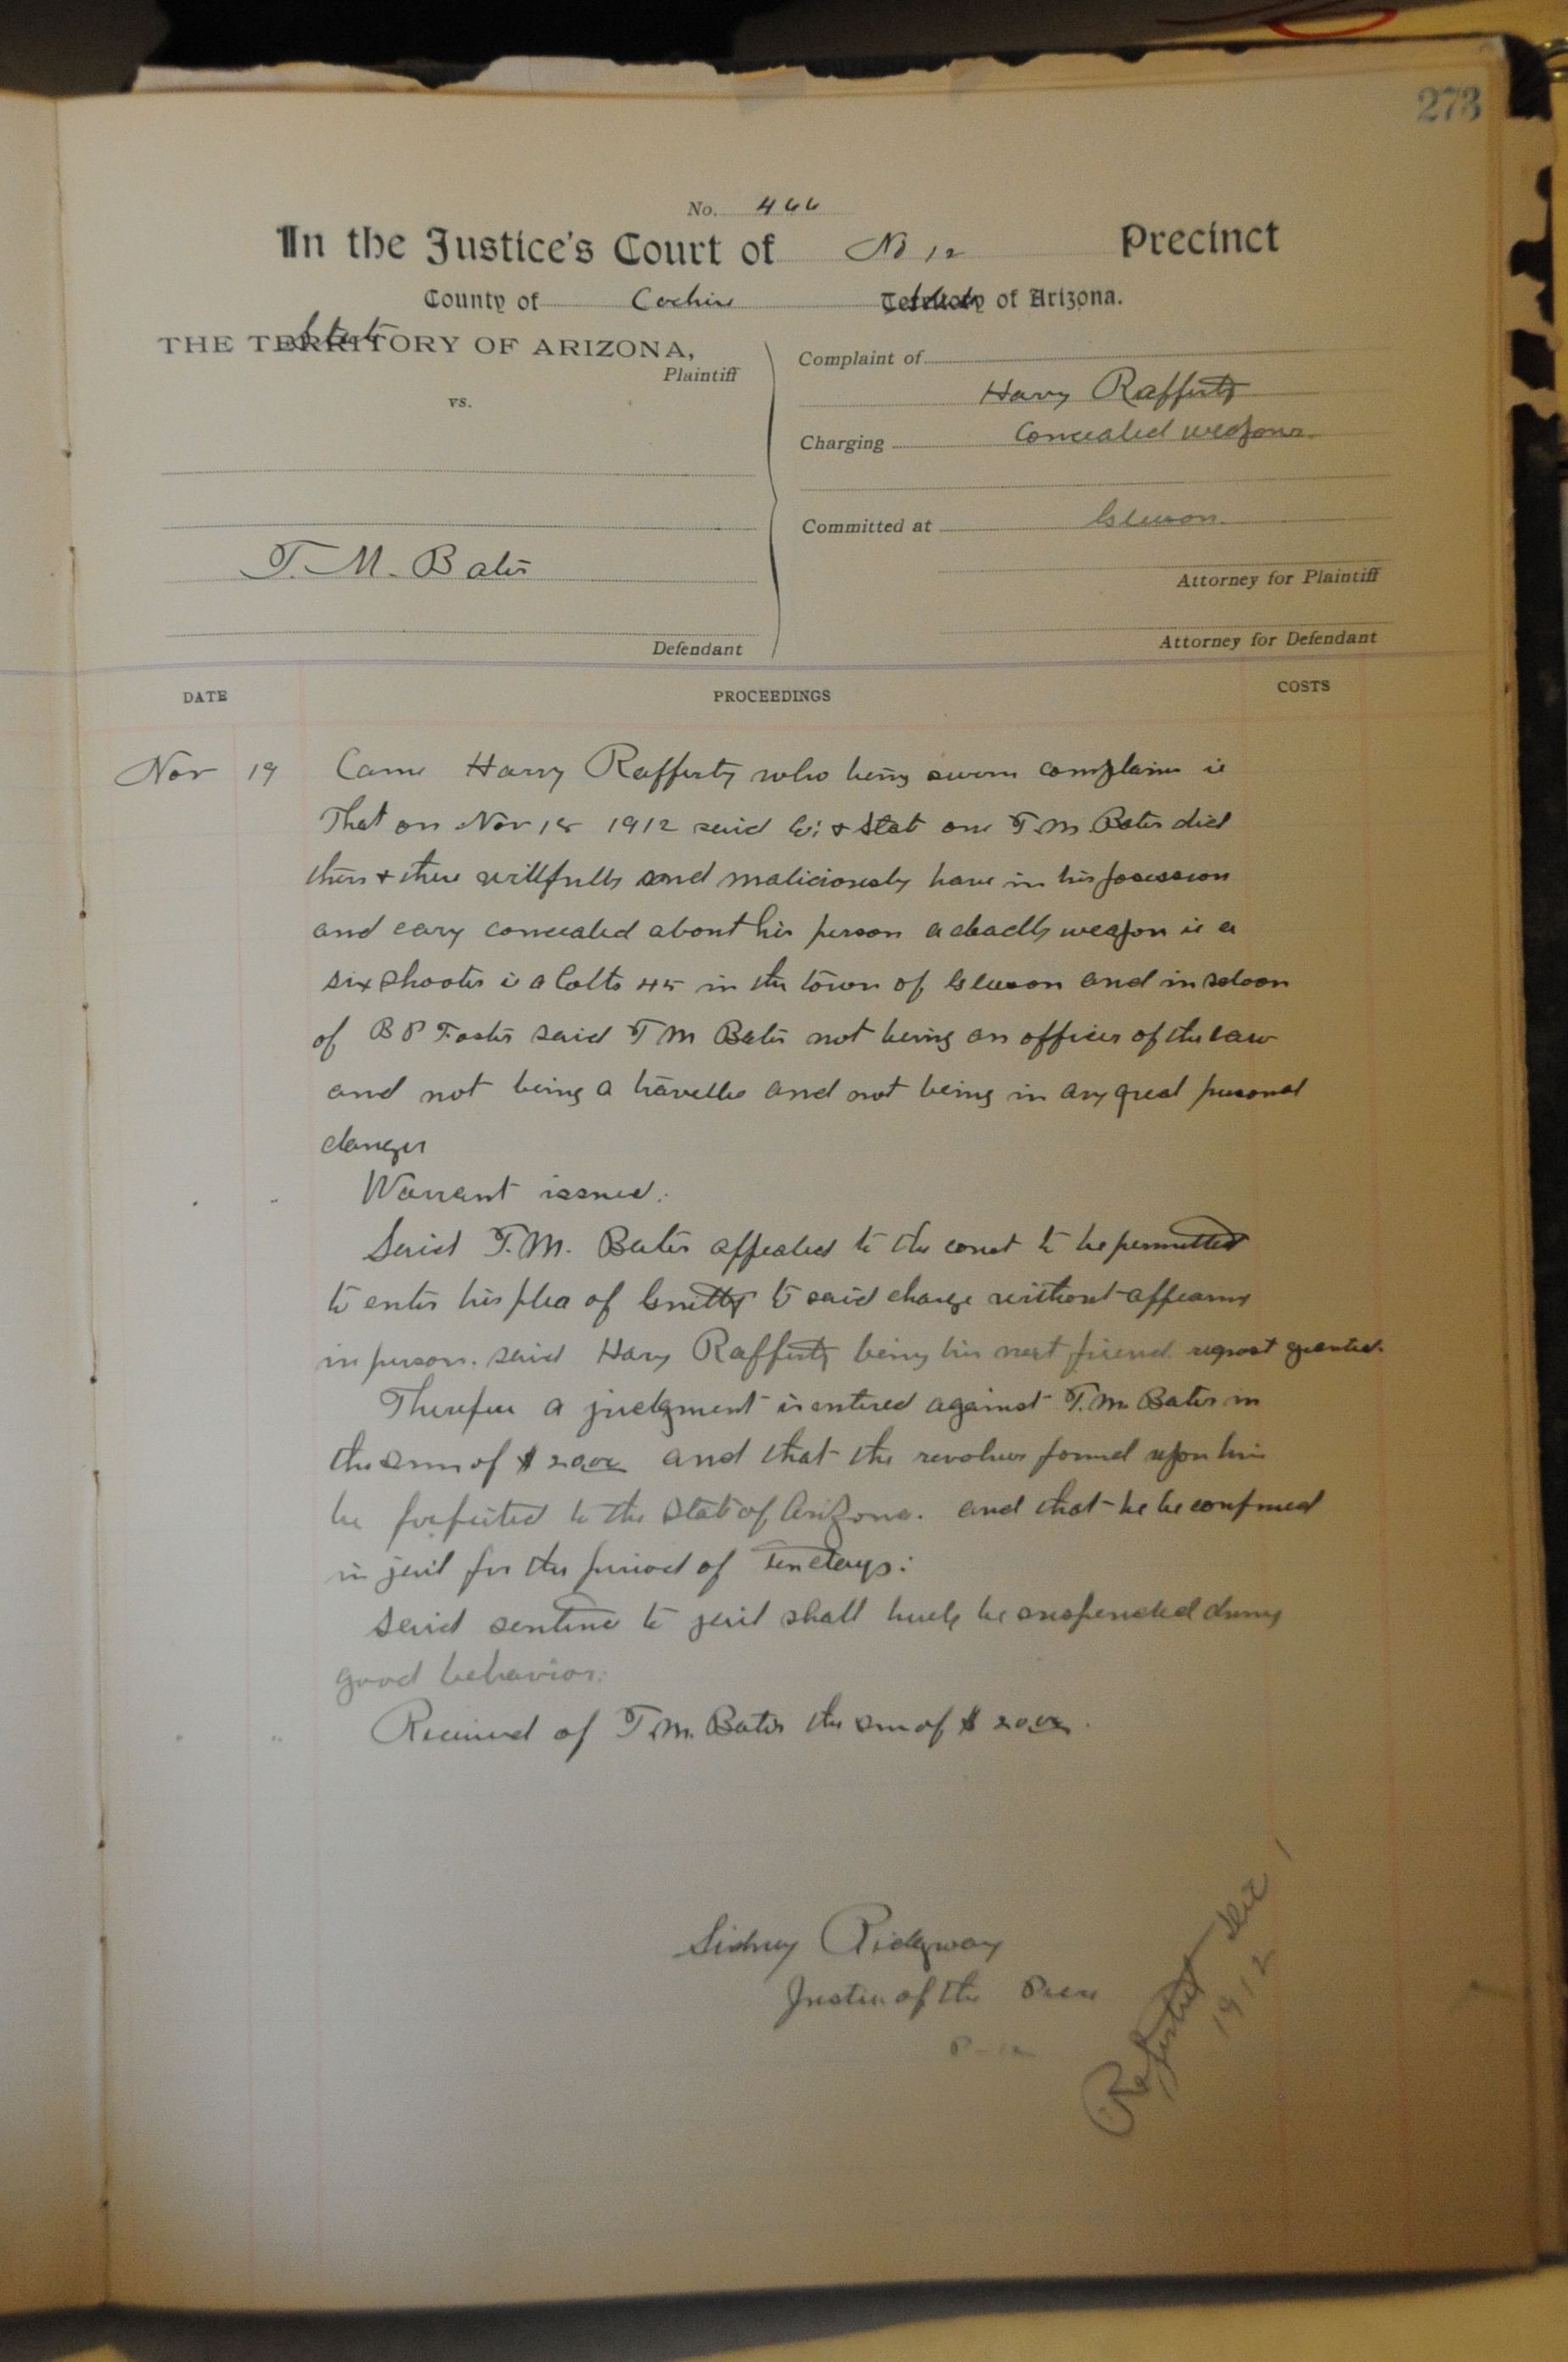 273
No. 466
In the Justice's Court of No 12 Precinct
County of Cochise State of Arizona.
THE State OF ARIZONA,
Plaintiff
vs.
T. M. Bates
Defendant
Complaint of
Harry Rafferty
Charging Concealed weapons.
Committed at Gleeson.
Attorney for Plaintiff
Attorney for Defendant
DATE PROCEEDINGS COSTS
Nov 19 Came Harry Rafferty who being sworn complains ie
That on Nov 18 1912 said Co & Stat one T.M. Bates did
then & there willfully and maliciously have in his posession
and cary concealed about his person a deadly weapon ie a
six shooter ie a Colts 45 in the town of Gleeson and in saloon
of B P Foster said T M Bates not being an officer of the law
and not being a traveller and not being in any great personal
danger
Warrant issued.
Said T.M. Bates appealed to the court to be permitted
to enter his plea of Guilty to said charge without appearing
in person. said Harry Rafferty being his next friend. request granted.
Therefore a judgment is entered against T.M. Bates in
the sum of $ 20.00 and that the revolver found upon him
be forfeited to the State of Arizona. and that he be confined
in jail for the period of Ten days:
Said sentence to jail shall be suspended during
good behavior.
Received of T.M. Bates the sum of $ 20.00.
Sidney Ridgway
Justice of the Peace
P-12
Reported Dec 1
1912